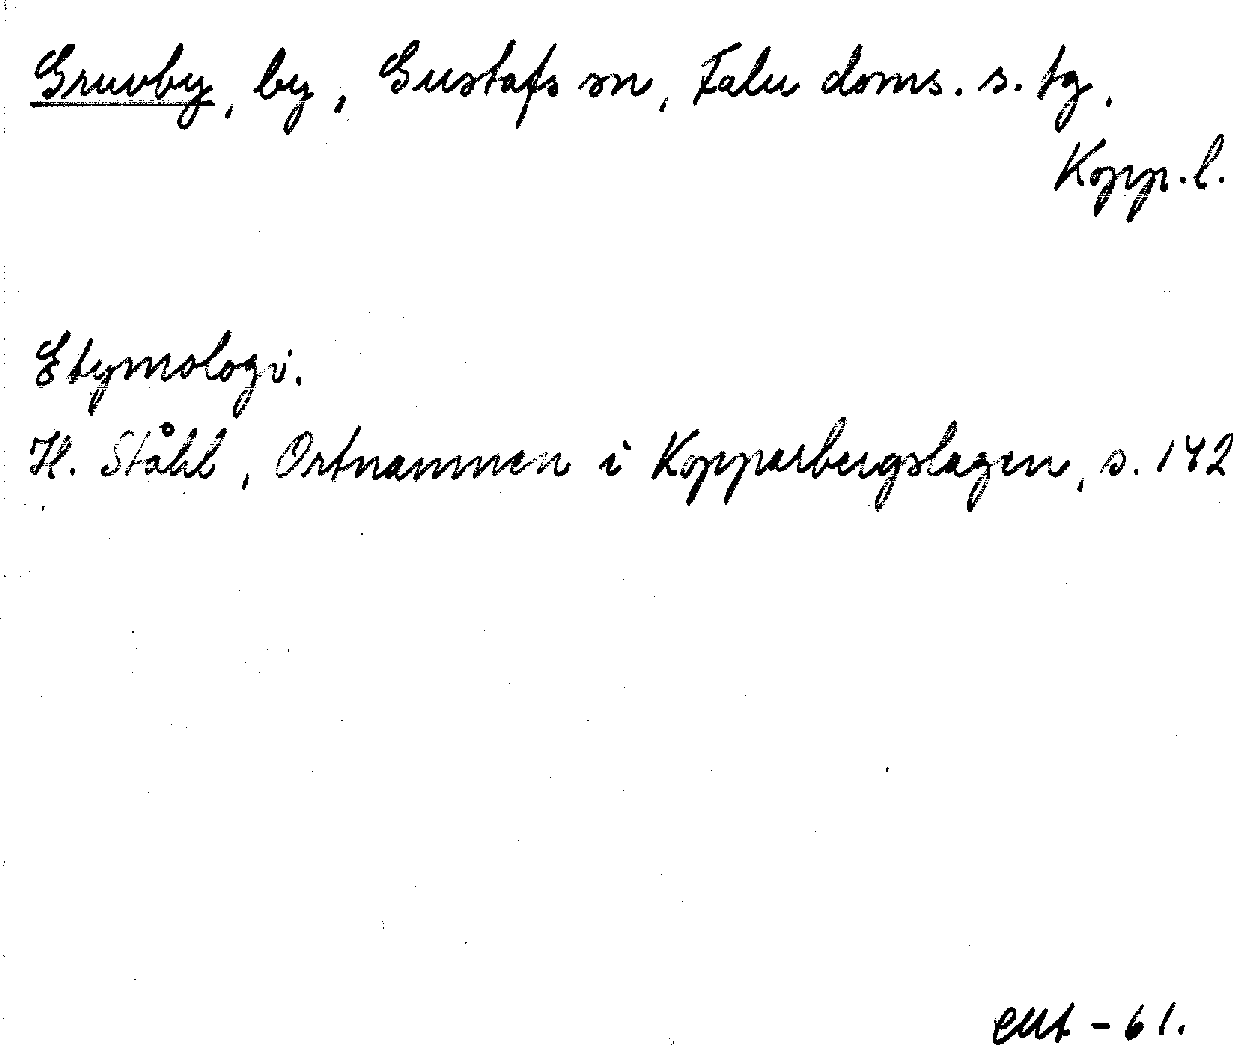 Gruvby, by, Gustafs sn, Falu doms. s. tg.
Kopp. l.
Etymologi.
H. Ståhl, Ortnamnen i Kopparbergslagen, s. 142
-61.